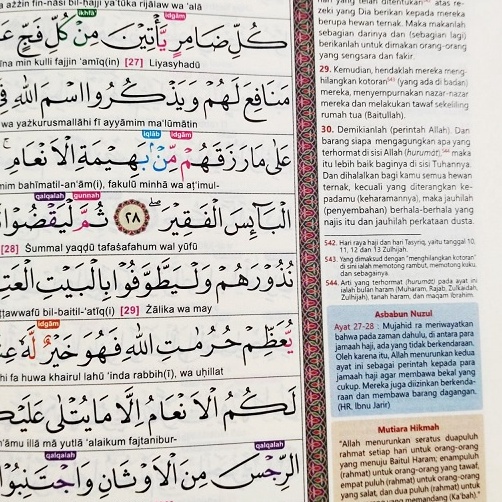 ażżin fin-nāsi bil-ḥajji ya'tūka rijālaw wa 'alā
ikhfā' idgām
كُلِّ ضَامِرٍ يَّأْتِيْنَ مِنْ كُلِّ فَجٍّ
na min kulli fajjin 'amīq(in) [27] Liyasyhadū
مَنَافِعَ لَهُمْ وَيَذْكُرُوا اسْمَ اللّٰهِ
wa yażkurusmallāhi fī ayyāmim ma'lūmātin
iqlāb idgām
عَلٰى مَا رَزَقَهُمْ مِّنْۢ بَهِيْمَةِ الْاَنْعَامِ
mim bahīmatil-an'ām(i), fakulū minhā wa aṭ'imul-
qalqalah gunnah
الْبَاۤىِٕسَ الْفَقِيْرَ ۖ ٢٨ ثُمَّ لْيَقْضُوْا
[28] Ṡummal yaqḍū tafaṡahum wal yūfū
نُذُوْرَهُمْ وَلْيَطَّوَّفُوْا بِالْبَيْتِ
ṭawwafū bil-baitil-'atīq(i) [29] Żālika wa may
idgām
يُّعَظِّمْ حُرُمٰتِ اللّٰهِ فَهُوَ خَيْرٌ لَّهٗ
hi fa huwa khairul lahū 'inda rabbih(ī), wa uḥillat
لَكُمُ الْاَنْعَامُ اِلَّا مَا يُتْلٰى عَلَيْكُمْ
'āmu illā mā yutlā 'alaikum fajtanibur-
qalqalah qalqalah
الرِّجْسَ مِنَ الْاَوْثَانِ وَاجْتَنِبُوْا
zeki yang Dia berikan kepada mereka
berupa hewan ternak. Maka makanlah
sebagian darinya dan (sebagian lagi)
berikanlah untuk dimakan orang-orang
yang sengsara dan fakir.
29. Kemudian, hendaklah mereka meng-
hilangkan kotoran⁵⁴³ (yang ada di badan)
mereka, menyempurnakan nazar-nazar
mereka dan melakukan tawaf sekeliling
rumah tua (Baitullah).
30. Demikianlah (perintah Allah). Dan
barang siapa mengagungkan apa yang
terhormat di sisi Allah (hurumāt),⁵⁴⁴ maka
itu lebih baik baginya di sisi Tuhannya.
Dan dihalalkan bagi kamu semua hewan
ternak, kecuali yang diterangkan ke-
padamu (keharamannya), maka jauhilah
(penyembahan) berhala-berhala yang
najis itu dan jauhilah perkataan dusta.
542. Hari raya haji dan hari Tasyriq, yaitu tanggal 10,
11, 12 dan 13 Zulhijah.
543. Yang dimaksud dengan "menghilangkan kotoran"
di sini ialah memotong rambut, memotong kuku,
dan sebagainya.
544. Arti yang terhormat (hurumāt) pada ayat ini
ialah bulan haram (Muharam, Rajab, Zulkaidah,
Zulhijah), tanah haram, dan maqam Ibrahim.
Asbabun Nuzul
Ayat 27-28 : Mujahid ra meriwayatkan
bahwa pada zaman dahulu, di antara para
jamaah haji, ada yang tidak berkendaraan.
Oleh karena itu, Allah menurunkan kedua
ayat ini sebagai perintah kepada para
jamaah haji agar membawa bekal yang
cukup. Mereka juga diizinkan berkenda-
raan dan membawa barang dagangan.
(HR. Ibnu Jarir)
Mutiara Hikmah
"Allah menurunkan seratus duapuluh
rahmat setiap hari untuk orang-orang
yang menuju Baitul Haram; enampuluh
(rahmat) untuk orang-orang yang tawaf,
empat puluh (rahmat) untuk orang-orang
yang salat, dan dua puluh (rahmat) untuk